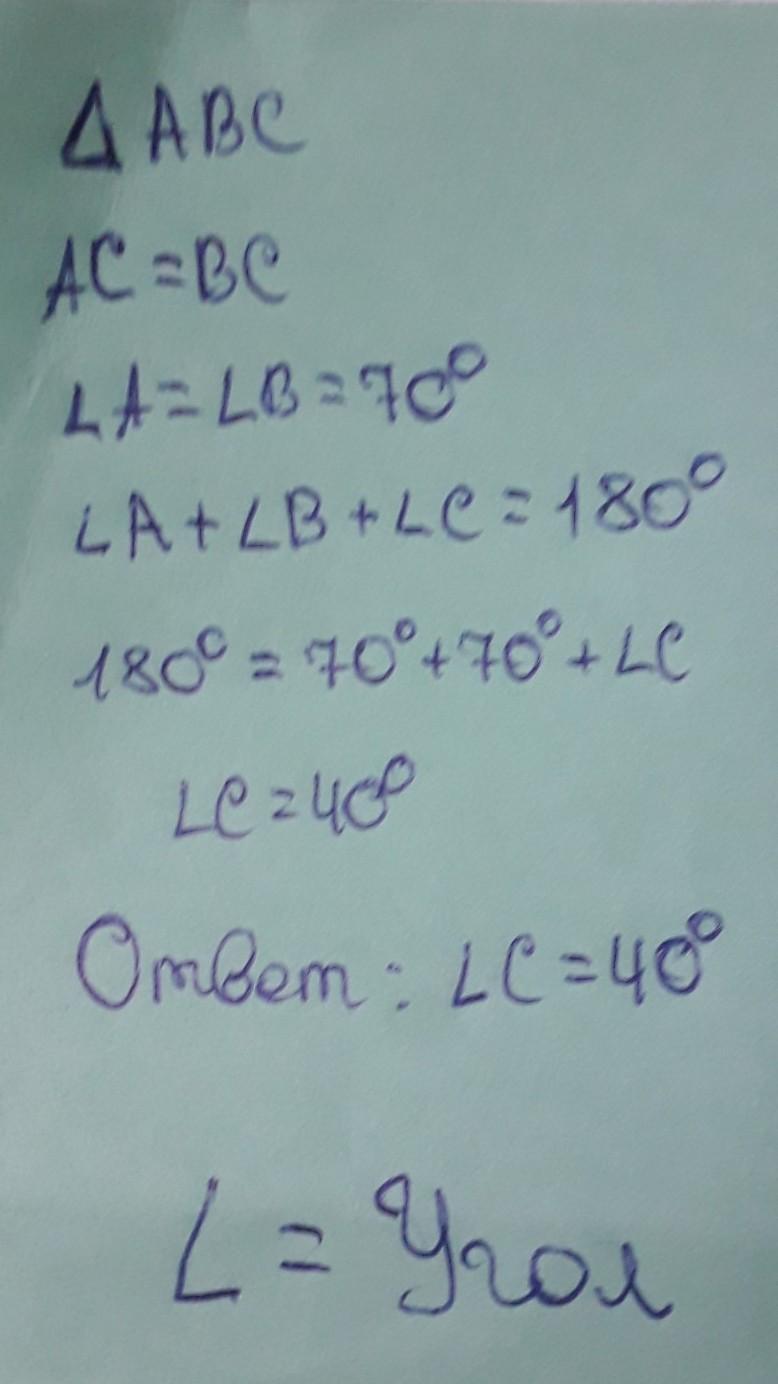 Δ ABC
AC = BC
∠A = ∠B = 70°
∠A + ∠B + ∠C = 180°
180° = 70° + 70° + ∠C
∠C = 40°
Ответ: ∠C = 40°
∠ = Угол